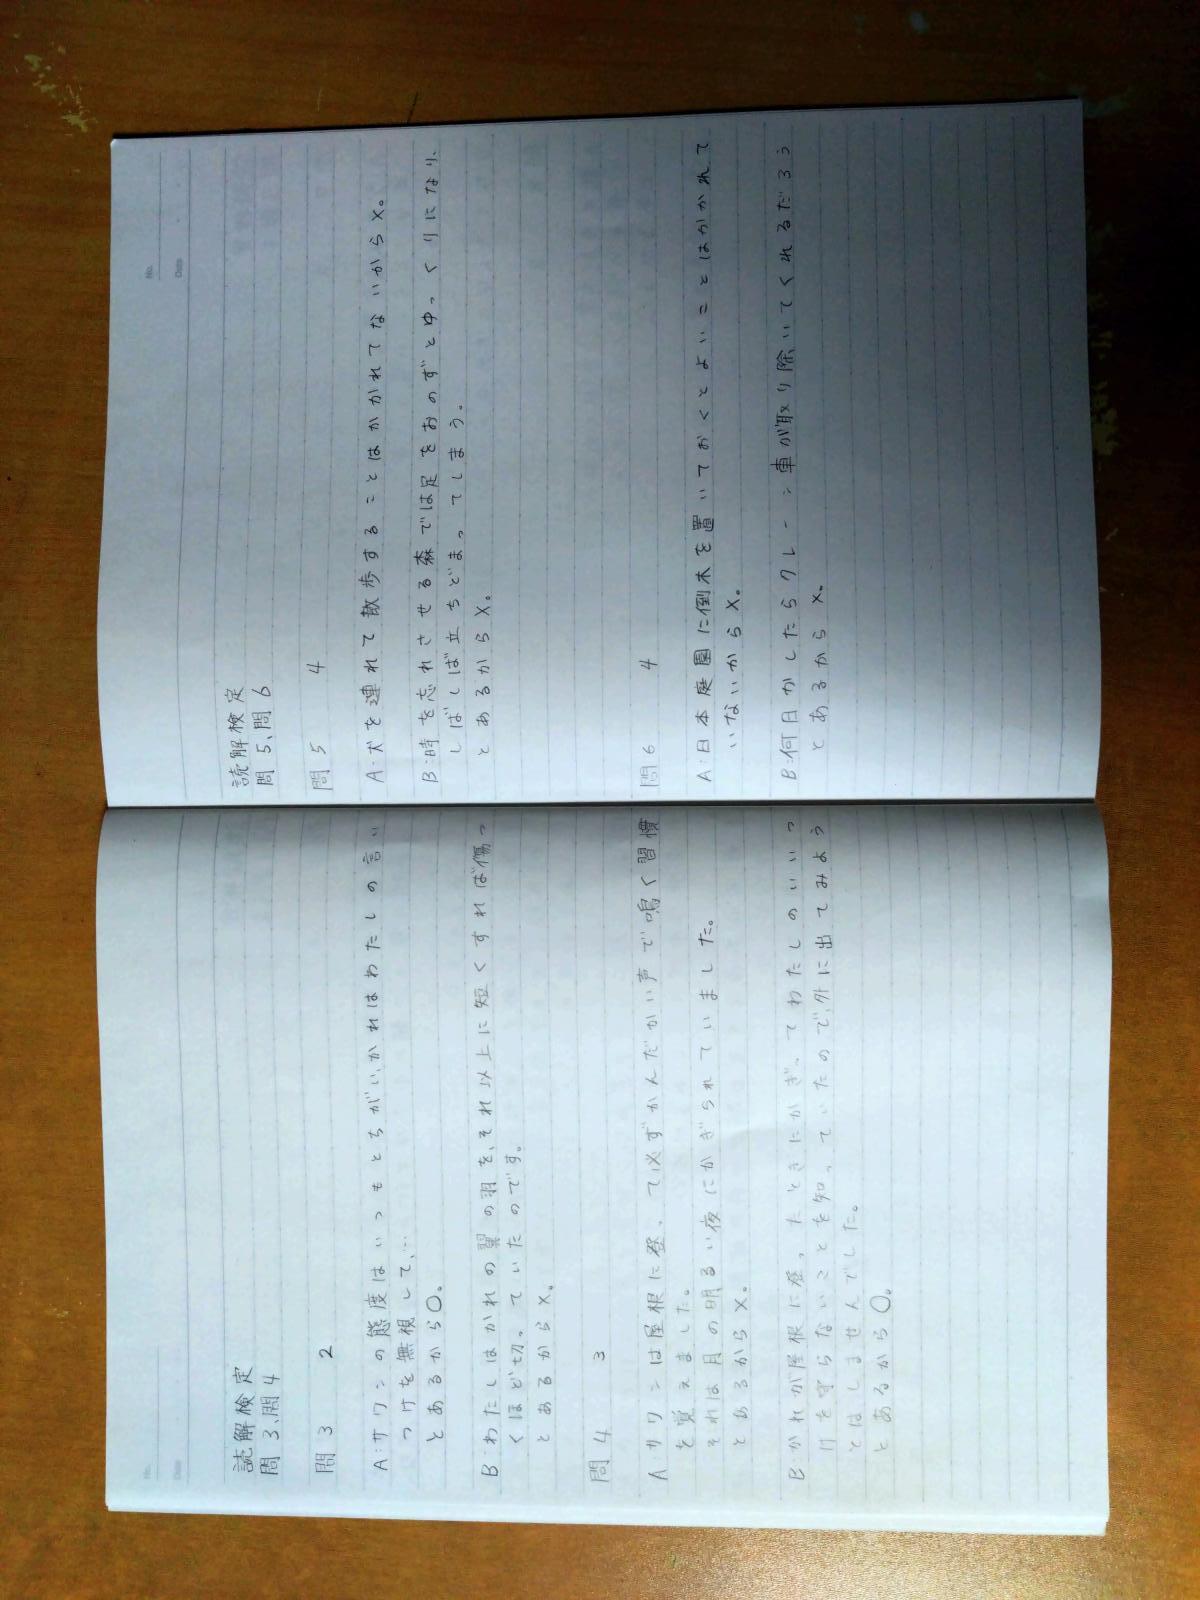 No.
Date
読解検定
問3、問4
問3 2
A:サワンの態度はいつもとちがい、かれはわたしの言い
つけを無視して、…
とあるから〇。
B:わたしはかれの翼の羽を、それ以上に短くすれば傷つ
くほど切っていたのです。
とあるから×。
問4 3
A:サワンは屋根に登って必ずかんだかい声で鳴く習慣
を覚えました。
それは月の明るい夜にかぎられていました。
とあるから×。
B:かれが屋根に登ったときにかぎってわたしのいいつ
けを守らないことを知っていたので、外に出てみよう
とはしませんでした。
とあるから〇。
No.
Date
読解検定
問5、問6
問5 4
A:犬を連れて散歩することはかかれてないから×。
B:時を忘れさせる森では足をおのずとゆっくりになり、
しばしば立ちどまってしまう。
とあるから×。
問6 4
A:日本庭園に倒木を置いておくとよいことはかかれて
いないから×。
B:何日かしたらクレーン車が取り除いてくれるだろう
とあるから×。